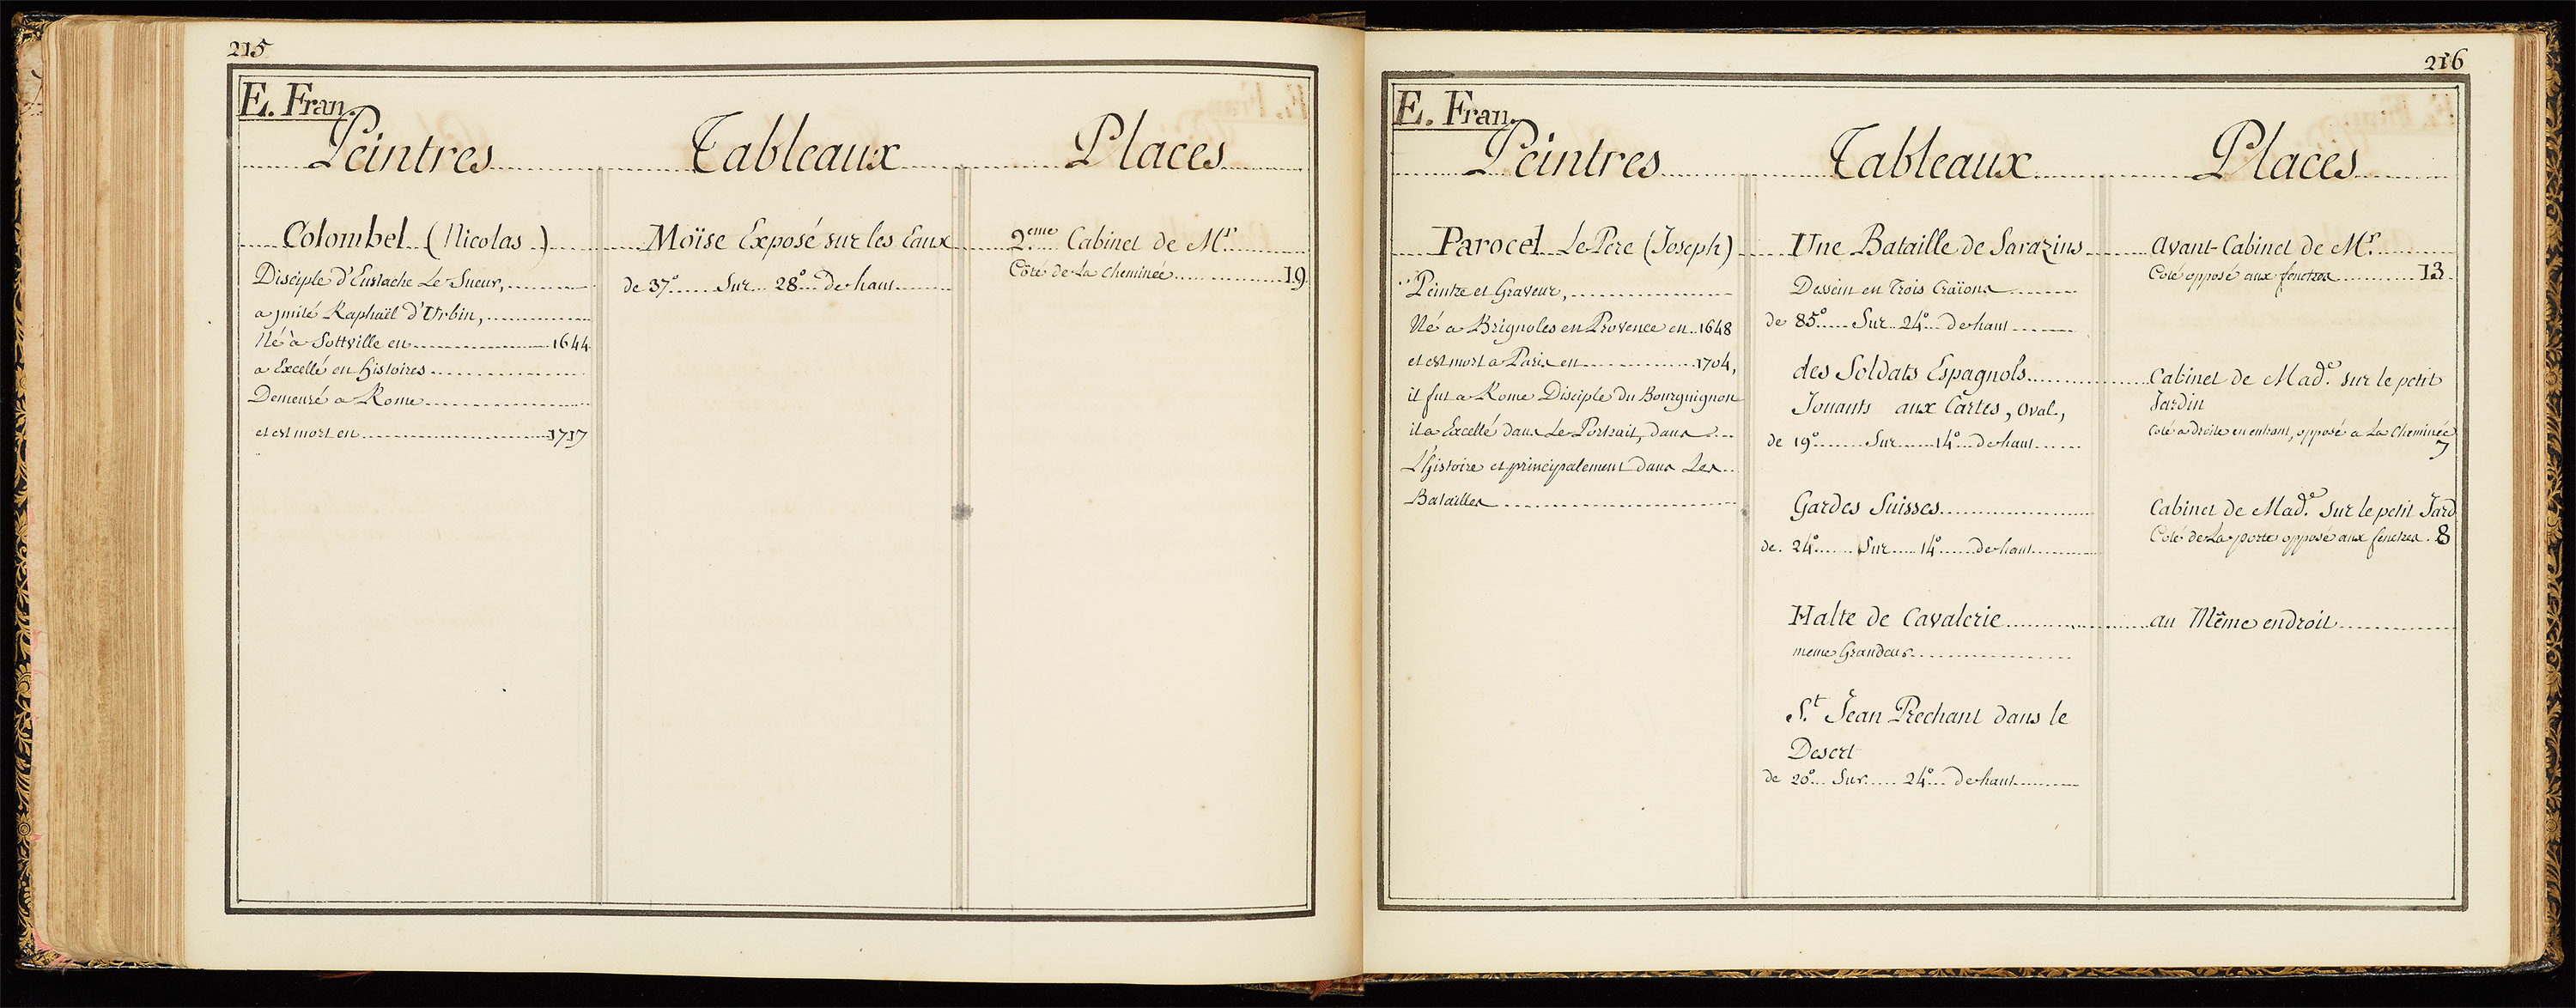 215
E. Fran.
Peintres Tableaux Places
Colombel (Nicolas)
Disciple d'Eustache Le Sueur,
a jmité Raphaël d'Urbin,
Né à Sottville en 1644
a Excellé en histoires
Demeuré a Rome
et est mort en 1717
Moïse Exposé sur les Eaux
de 37° Sur 28° De haut
2.eme Cabinet de Mr
Côté de La cheminée 19
216
E. Fran.
Peintres Tableaux Places
Parocel Le Pere (Joseph)
Peintre et Graveur,
Né a Brignoles en Provence en 1648
et est mort a Paris en 1704,
il fut a Rome Disciple du Bourguignon
il a Excellé dans Le Portrait, dans
L'histoire et principalement dans Les
Batailles
Une Bataille de Sarazins
Dessein en Trois Craïons
de 85° Sur 24° De haut
des Soldats Espagnols
Jouants aux Cartes, Oval,
de 19° Sur 14° De haut
Gardes Suisses
de 24° Sur 14° De haut
Halte de Cavalerie
meme Grandeur
S.t Jean Prechant dans le
Desert
de 20° Sur 24° De haut
Avant-Cabinet de Mr
Coté opposé aux fenetres 13
Cabinet de Made. sur le petit
Jardin
Coté a droite en entrant, opposé a La Cheminée
7
Cabinet de Made. Sur le petit Jard
Coté de La porte opposé aux fenetres 8
au Même endroit